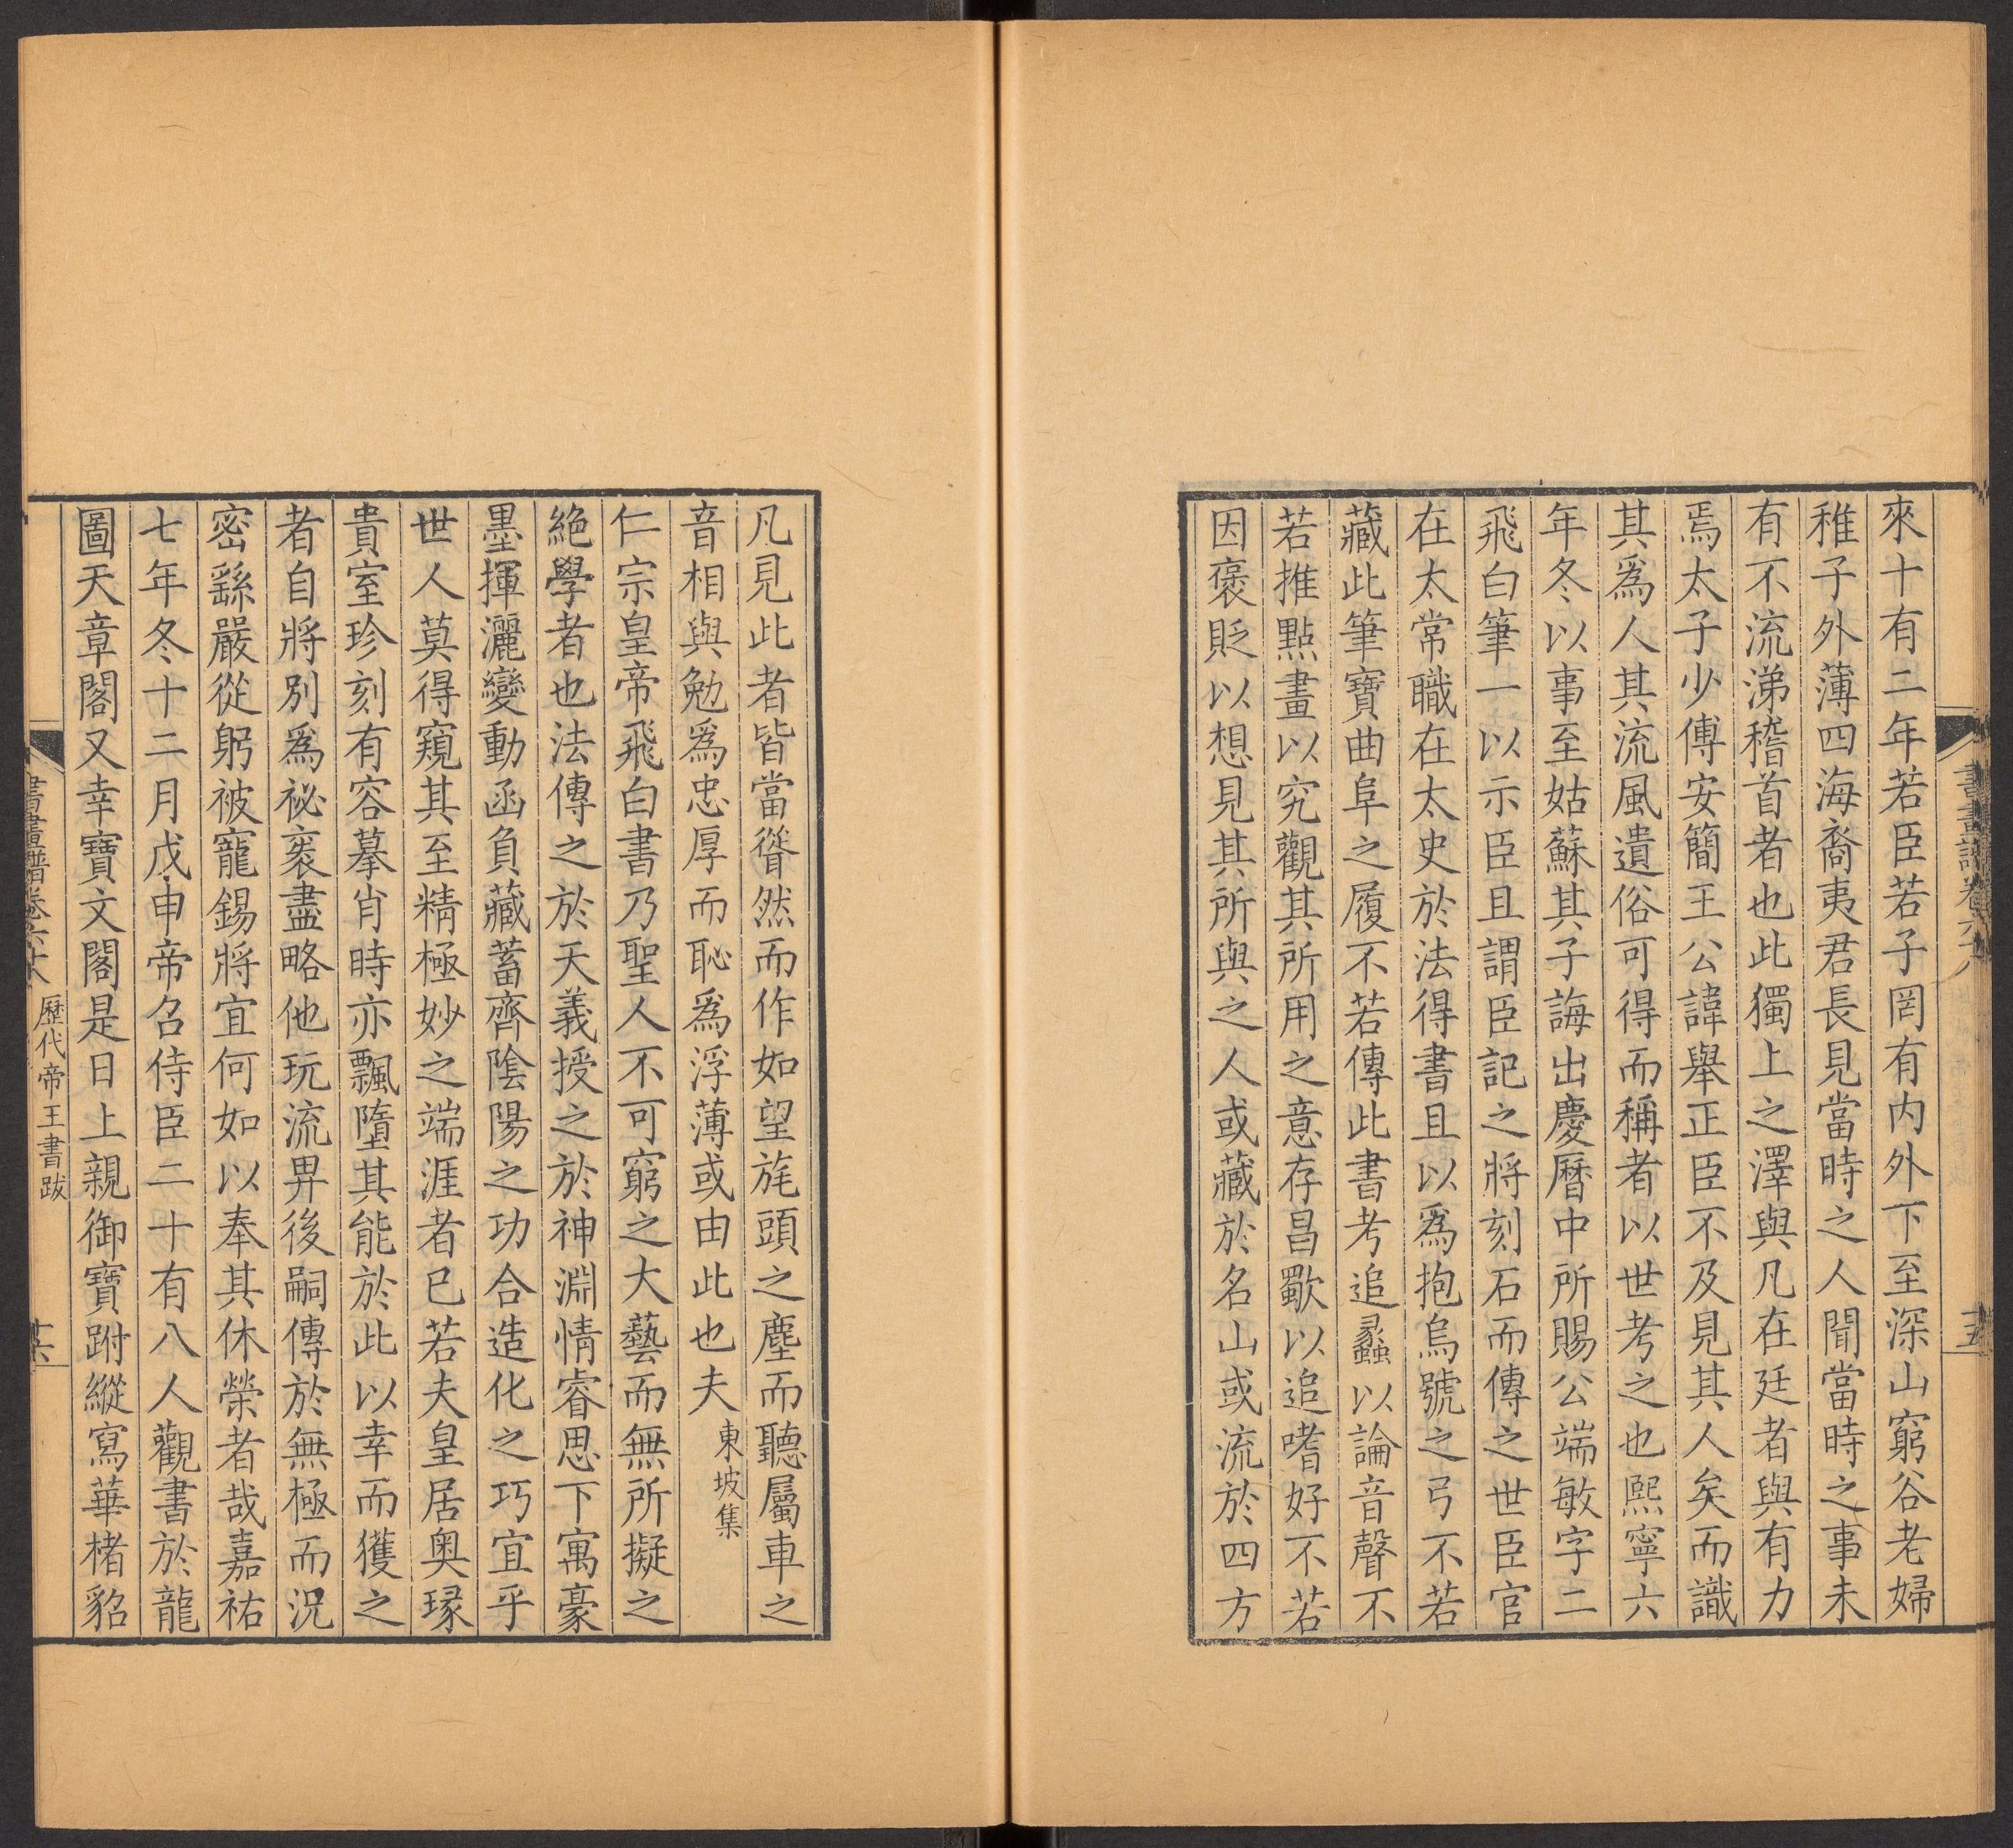 書畫譜卷六十八
十五
來十有二年若臣若子罔有内外下至深山窮谷老婦
稚子外薄四海裔夷君長見當時之人聞當時之事未
有不流涕稽首者也此獨上之澤與凡在廷者與有力
焉太子少傅安簡王公諱舉正臣不及見其人矣而識
其爲人其流風遺俗可得而稱者以世考之也熙寧六
年冬以事至姑蘇其子誨出慶曆中所賜公端敏字二
飛白筆一以示臣且謂臣記之將刻石而傳之世臣官
在太常職在太史於法得書且以爲抱烏號之弓不若
藏此筆寶曲阜之履不若傳此書考追蠡以論音聲不
若推點畫以究觀其所用之意存昌歜以追嗜好不若
因褒貶以想見其所與之人或藏於名山或流於四方
凡見此者皆當聳然而作如望旄頭之塵而聽屬車之
音相與勉爲忠厚而恥爲浮薄或由此也夫東坡集
仁宗皇帝飛白書乃聖人不可窮之大藝而無所擬之
絶學者也法傳之於天義授之於神淵情睿思下寓豪
墨揮灑變動函負藏蓄齊陰陽之功合造化之巧宜乎
世人莫得窺其至精極妙之端涯者已若夫皇居奥瑑
貴室珍刻有容摹肖時亦飄墮其能於此以幸而獲之
者自將別爲祕袠盡略他玩流畀後嗣傳於無極而況
密繇嚴從躬被寵錫將宜何如以奉其休榮者哉嘉祐
七年冬十二月戊申帝召侍臣二十有八人觀書於龍
圖天章閣又幸寶文閣是日上親御寶跗縱寫華楮貂
書畫譜卷六十八
歷代帝王書跋
十六